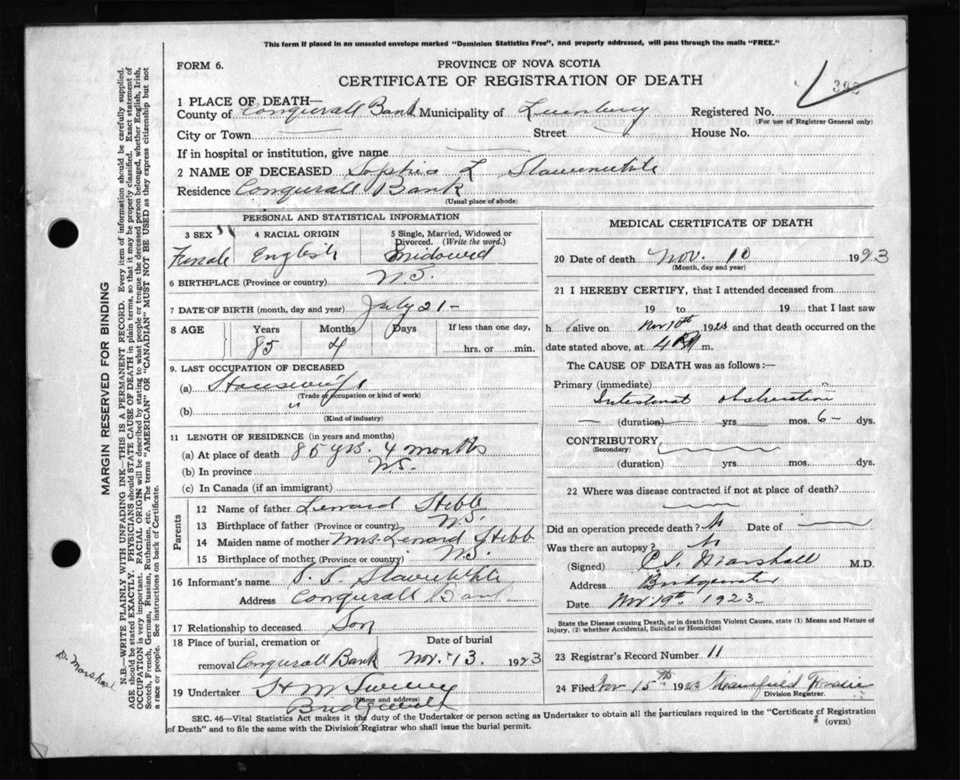 This form if placed in an unsealed envelope marked "Dominion Statistics Free", and properly addressed, will pass through the mails "FREE."
FORM 6.
PROVINCE OF NOVA SCOTIA
CERTIFICATE OF REGISTRATION OF DEATH
1 PLACE OF DEATH
County of Conqurall Bank Municipality of Lunenburg Registered No.
(For use of Registrar General only)
City or Town Street House No.
If in hospital or institution, give name
2 NAME OF DECEASED Sophia L
Residence Conqurall Bank
(Usual place of abode)
PERSONAL AND STATISTICAL INFORMATION
3 SEX 4 RACIAL ORIGIN 5 Single, Married, Widowed or Divorced. (Write the word.)
Female English Widowed
6 BIRTHPLACE (Province or country) N S.
7 DATE OF BIRTH (month, day and year) July 21 -
8 AGE Years Months Days If less than one day,
85 4 hrs. or min.
9. LAST OCCUPATION OF DECEASED
(a) Housewife
(Trade or occupation or kind of work)
(b) "
(Kind of industry)
11 LENGTH OF RESIDENCE (in years and months)
(a) At place of death 85 yrs. 4 months
(b) In province N S.
(c) In Canada (if an immigrant)
Parents
12 Name of father Lenard Hebb
13 Birthplace of father (Province or country) N S.
14 Maiden name of mother Mrs. Lenard Hebb
15 Birthplace of mother (Province or country) N S.
16 Informant's name
Address Conqurall Bank
17 Relationship to deceased Son
18 Place of burial, cremation or removal Conqurall Bank
Date of burial Nov. 13. 1923
19 Undertaker H M
(Name and address)
MEDICAL CERTIFICATE OF DEATH
20 Date of death Nov. 10 1923
(Month, day and year)
21 I HEREBY CERTIFY, that I attended deceased from
19 to 19 that I last saw
h alive on Nov 10th 1923 and that death occurred on the
date stated above, at 4 m.
The CAUSE OF DEATH was as follows :—
Primary (immediate)
Intestinal obstruction
(duration) yrs mos. 6 - dys.
CONTRIBUTORY
(Secondary)
(duration) yrs mos. dys.
22 Where was disease contracted if not at place of death?
Did an operation precede death? No Date of
Was there an autopsy? No
(Signed) C S. Marshall M.D.
Address Bridgewater
Date Nov 19th 1923 -
State the Disease causing Death, or in death from Violent Causes, state (1) Means and Nature of Injury, (2) whether Accidental, Suicidal or Homicidal
23 Registrar's Record Number 11
24 Filed Nov 15th 1923
Division Registrar.
SEC. 46—Vital Statistics Act makes it the duty of the Undertaker or person acting as Undertaker to obtain all the particulars required in the "Certificate of Registration
of Death" and to file the same with the Division Registrar who shall issue the burial permit.
(OVER)
MARGIN RESERVED FOR BINDING
N.B.—WRITE PLAINLY WITH UNFADING INK—THIS IS A PERMANENT RECORD. Every item of information should be carefully supplied.
AGE should be stated EXACTLY. PHYSICIANS should STATE CAUSE OF DEATH in plain terms, so that it may be properly classified. Exact statement of
OCCUPATION is very important. RACIAL ORIGIN will be described by stating to what people or tongue the deceased person belonged, whether English, Irish,
Scotch, French, German, Russian, Ruthenian, etc. The terms "AMERICAN" OR "CANADIAN" MUST NOT BE USED as they express citizenship but not
a race or people. See instructions on back of Certificate.
Dr. Marshall